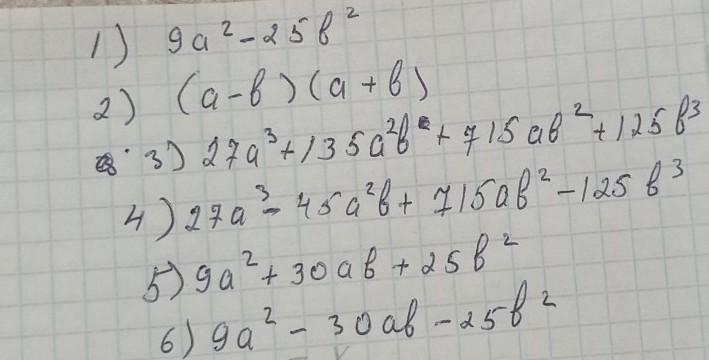 1) 9a² - 25b²
2) (a-b)(a+b)
3) 27a³ + 135a²b + 715ab² + 125b³
4) 27a³ - 45a²b + 715ab² - 125b³
5) 9a² + 30ab + 25b²
6) 9a² - 30ab - 25b²